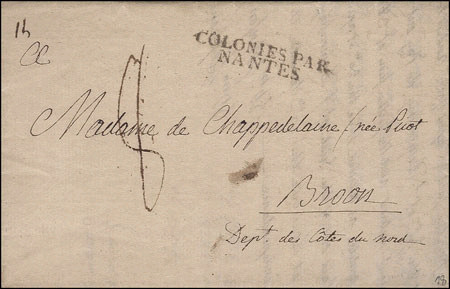 COLONIES PAR
NANTES
Madame de Chappedelaine (née Picot
Broon
Dept. des Côtes du nord